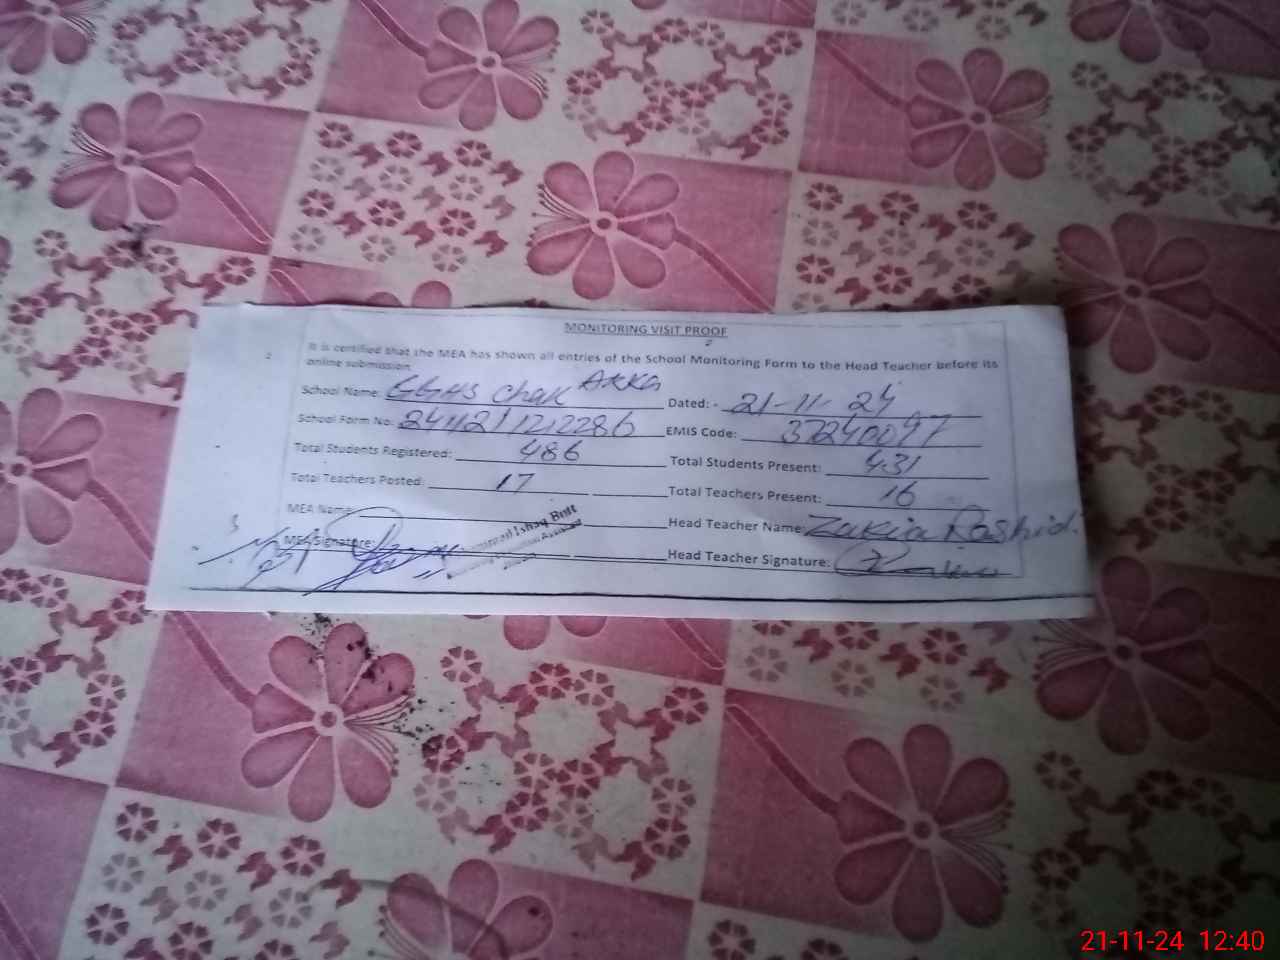 MONITORING VISIT PROOF
It is certified that the MEA has shown all entries of the School Monitoring Form to the Head Teacher before its
online submission
School Name: GGHS Chak Akka Dated: - 21-11-24
School Form No: EMIS Code: 37240097
Total Students Registered: 486 Total Students Present: 431
Total Teachers Posted: 17 Total Teachers Present: 16
MEA Name: Head Teacher Name: Zakia Rashid.
MEA Signature: Ishaq Butt Head Teacher Signature:
21-11-24 12:40